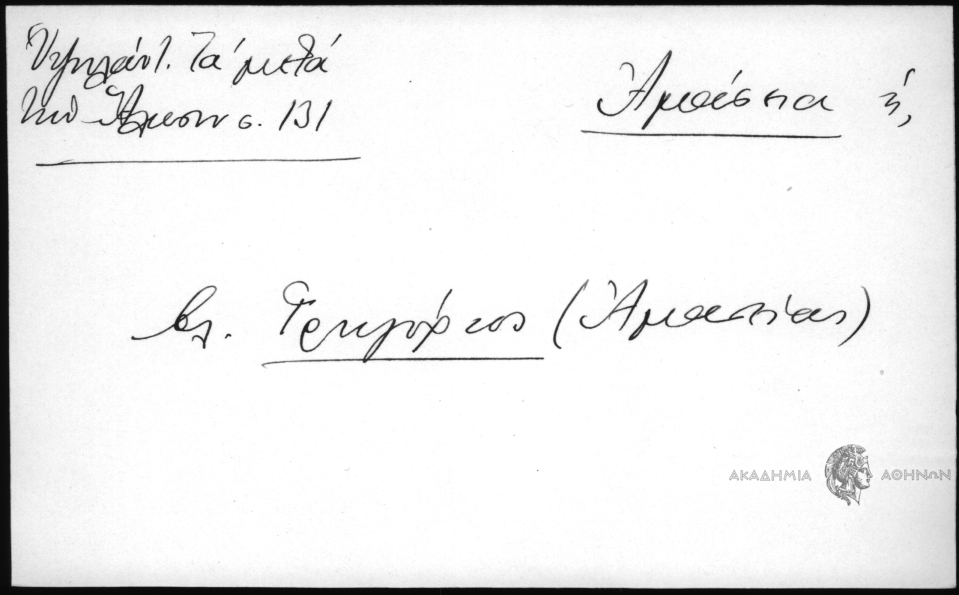 Ὑψηλάντ. Τά μετά
τήν Ἅλωσιν σ. 131
Ἀμάσεια ἡ,
βλ. Γρηγόριος (Ἀμασείας)
ΑΚΑΔΗΜΙΑ ΑΘΗΝΩΝ